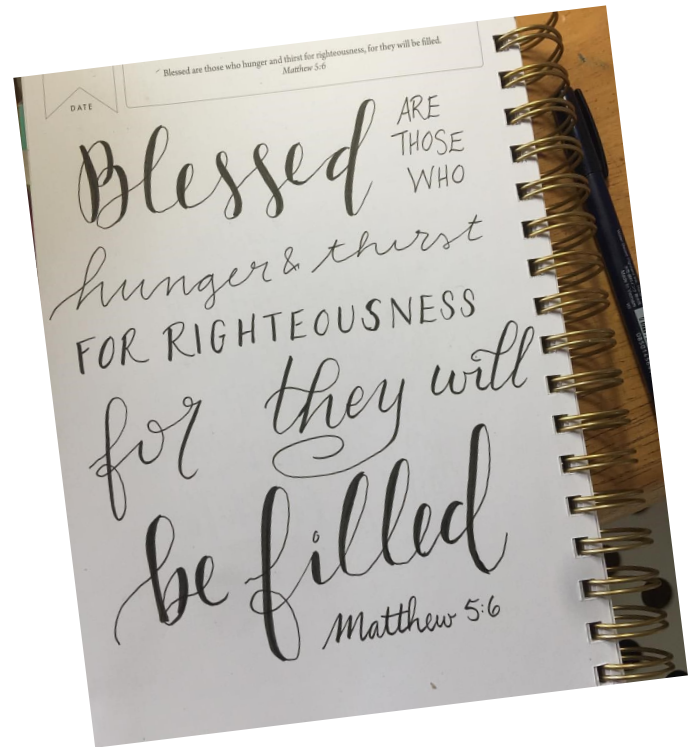 Blessed are those who hunger and thirst for righteousness, for they will be filled.
Matthew 5:6
DATE
Blessed ARE
THOSE
WHO
hunger & thirst
FOR RIGHTEOUSNESS
for they will
be filled
Matthew 5:6